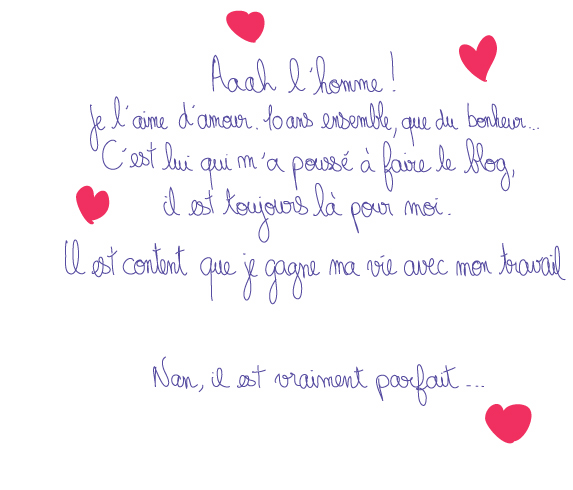 Aaah l'homme!
Je l'aime d'amour. 10 ans ensemble, que du bonheur...
C'est lui qui m'a poussé à faire le blog,
il est toujours là pour moi.
Il est content que je gagne ma vie avec mon travail
Nan, il est vraiment parfait...